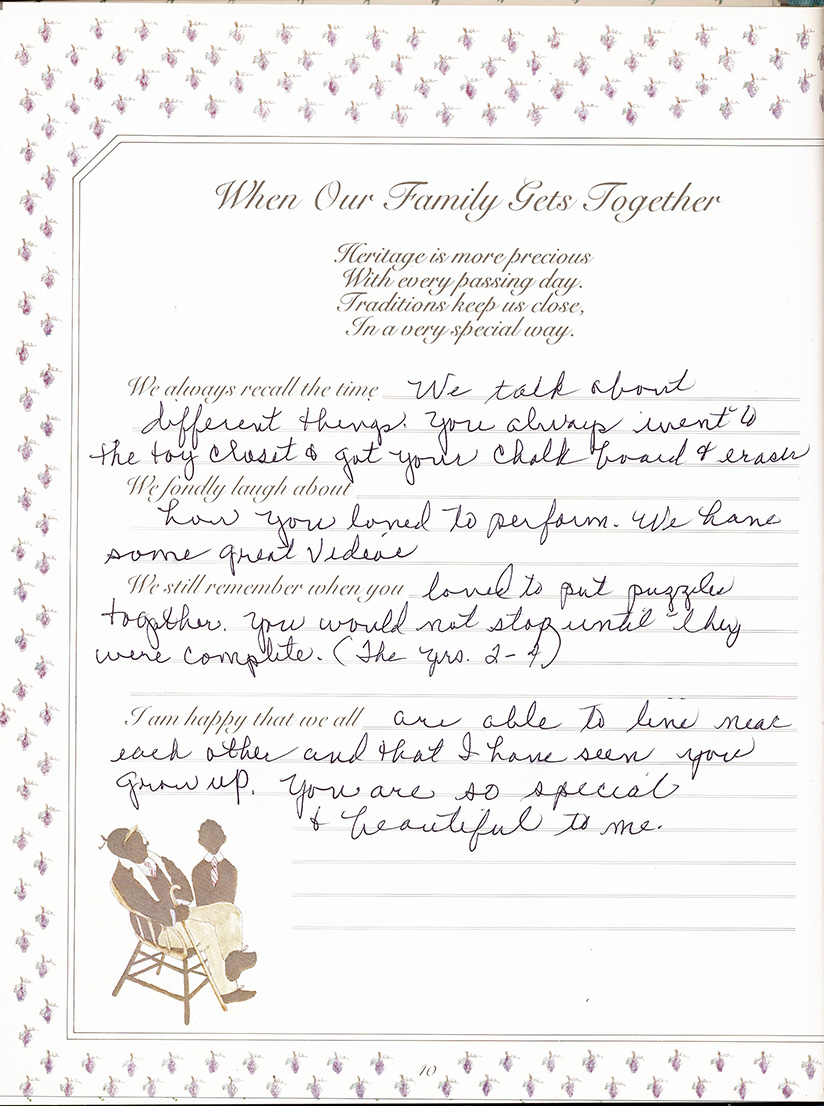 When Our Family Gets Together
Heritage is more precious
With every passing day.
Traditions keep us close,
In a very special way.
We always recall the time We talk about
different things. You always went to
the toy closet & got your chalk board & eraser
We fondly laugh about
how you loved to perform. We have
some great videos
We still remember when you loved to put puzzles
together. You would not stop until they
were complete. (The yrs. 2-4)
I am happy that we all are able to live near
each other and that I have seen you
grow up. You are so special
& beautiful to me.
10